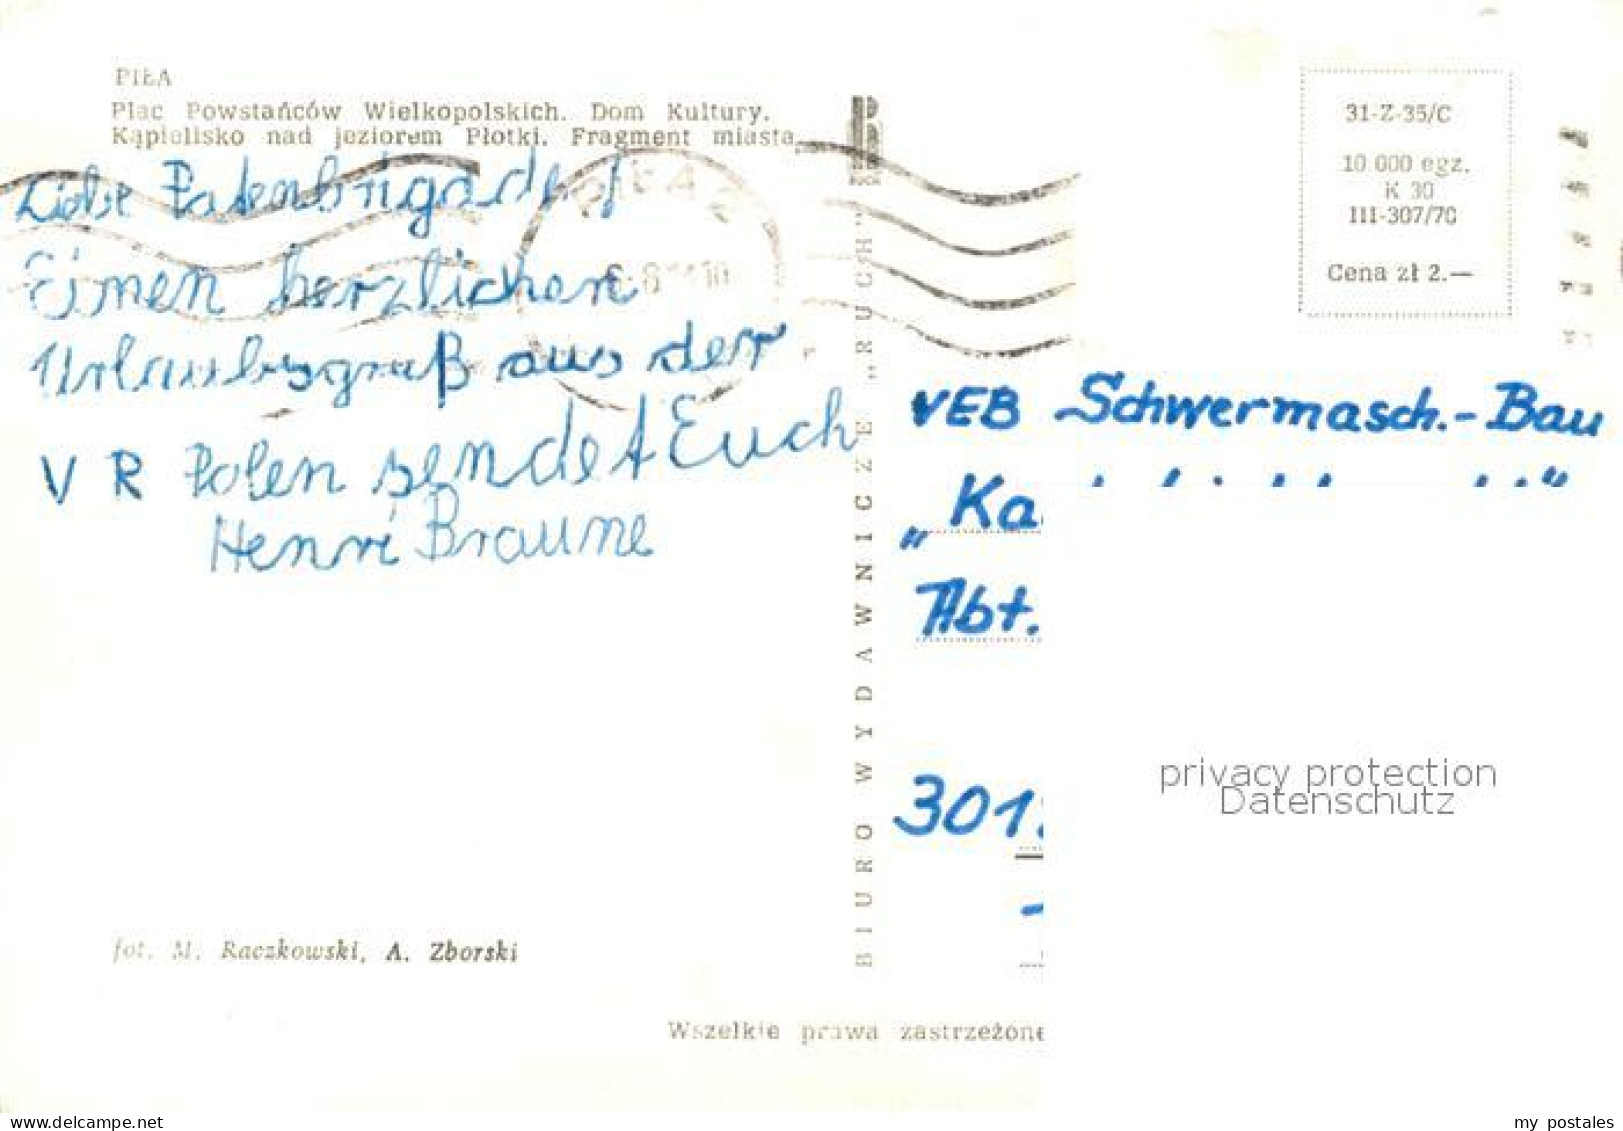 PIŁA
Plac Powstańców Wielkopolskich. Dom Kultury.
Kąpielisko nad jeziorem Płotki. Fragment miasta.
Liebe Patenbrigade!
Einen herzlichen
Urlaubsgruß aus der
V R Polen sendet Euch
Henri Braune
fot. M. Raczkowski, A. Zborski
BIURO WYDAWNICZE "RUCH"
Wszelkie prawa zastrzeżone
31-Z-35/C
10 000 egz.
K 30
III-307/70
Cena zł 2.—
VEB Schwermasch.-Bau
„Ka
Abt.
301
privacy protection
Datenschutz
delcampe.net
my_postales